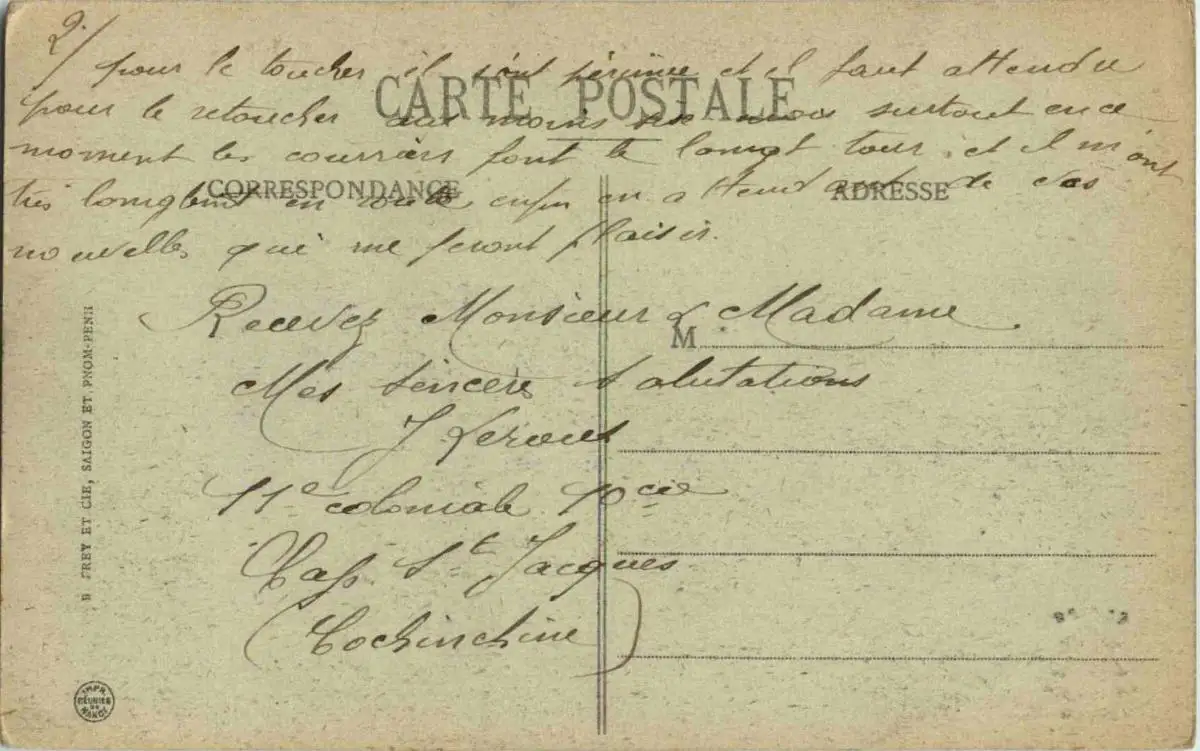 2/
pour le toucher il sont périmée et il faut attendre
CARTE POSTALE
pour le retoucher au moins six mois surtout en ce
moment les courriers font le longt tour, et il m'ont
CORRESPONDANCE
ADRESSE
très longtent en route enfin en attendant de vos
nouvelles qui me feront plaisir.
Recevez Monsieur & Madame
M
Mes sincères Salutations
J Leroux
11e coloniale 10cie
Cap St Jacques
(Cochinchine)
FREY ET CIE, SAIGON ET PNOM-PENH
IMPR. RÉUNIES DE NANCY